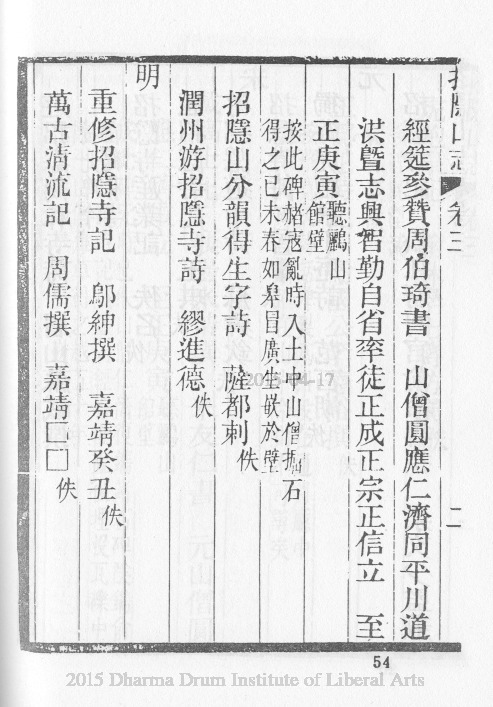 招隱山志 卷三 二
經筵參贊周伯琦書 山僧圓應仁濟同平川道
洪曁志興智勤自省率徒正成正宗正信立 至
正庚寅 聽鸝山
館壁
按此碑赭寇亂時入土中山僧掘石
得之已未春如皋冒廣生嵌於壁
招隱山分韻得生字詩 薩都剌 佚
潤州游招隱寺詩 繆進德 佚
明
重修招隱寺記 鄔紳撰 嘉靖癸丑 佚
萬古淸流記 周儒撰 嘉靖□□ 佚
54
2015-04-17
2015 Dharma Drum Institute of Liberal Arts